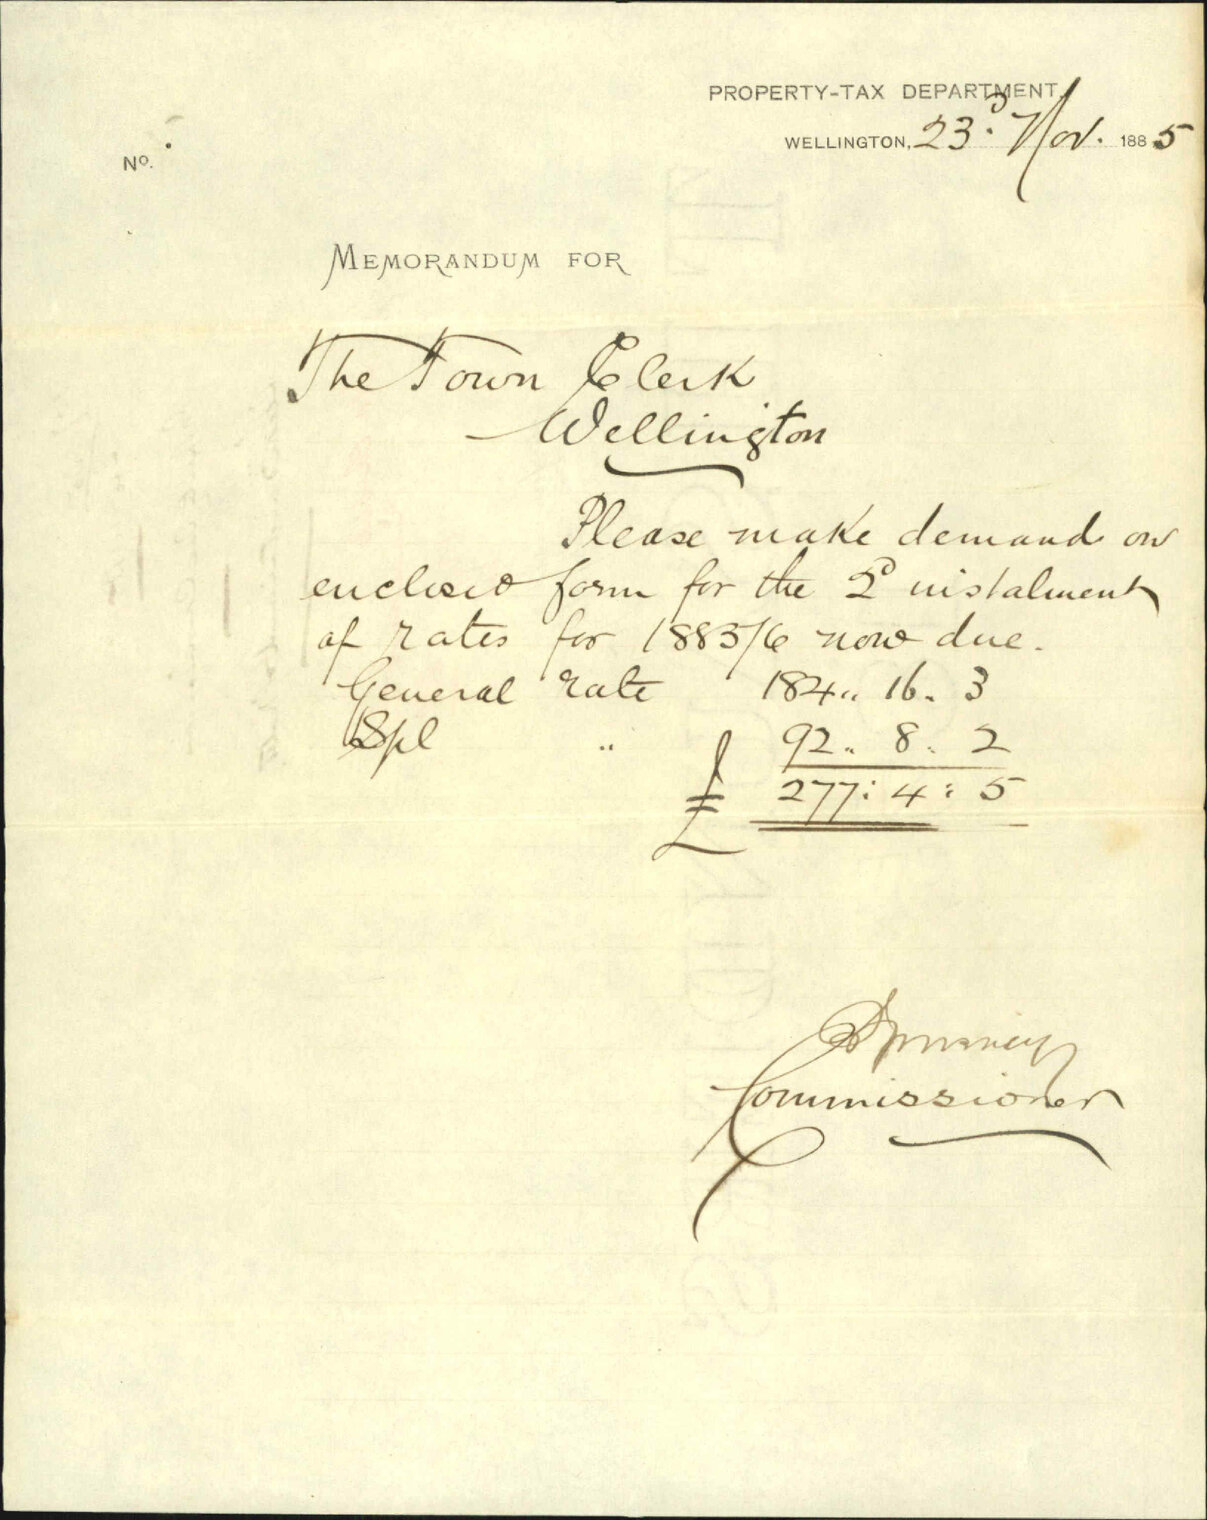 PROPERTY-TAX DEPARTMENT,
WELLINGTON, 23d. Nov. 1885
No.
MEMORANDUM FOR
The Town Clerk
Wellington
Please make demand on
enclosed form for the 2d instalment
of rates for 1885/6 now due.
General rate 184.. 16. 3
Spl " 92.. 8. 2
£ 277: 4: 5
Commissioner